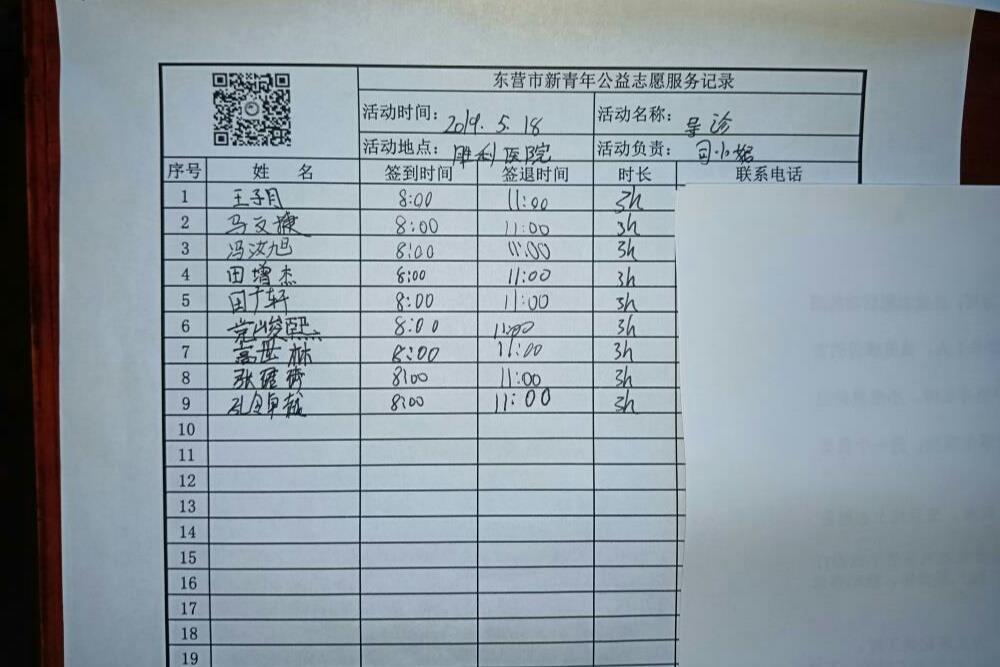 东营市新青年公益志愿服务记录
活动时间: 2019.5.18 活动名称: 导诊
活动地点: 胜利医院 活动负责:
序号 姓 名 签到时间 签退时间 时长 联系电话
1 王子月 8:00 11:00 3h
2 马文 8:00 11:00 3h
3 冯汝旭 8:00 11:00 3h
4 田增杰 8:00 11:00 3h
5 田广轩 8:00 11:00 3h
6 峻熙 8:00 11:00 3h
7 高世林 8:00 11:00 3h
8 张 8:00 11:00 3h
9 8:00 11:00 3h
10
11
12
13
14
15
16
17
18
19